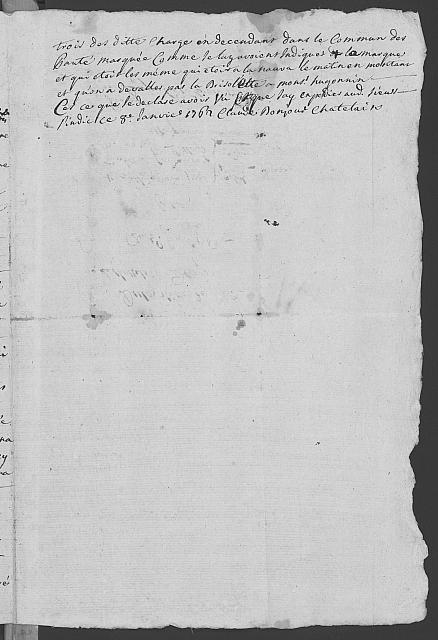 trois des ditte Charge en decendant dans le Commun des
marquée Comme Je luy avoient Indiques la marque
et qui étoit les même qui étoit a la nauva le matin en montant
et qu'on a devalles par la mons.r hugonnin
Ces ce que Je declare avoir Vu que Jay expedier aud. sieur
sindic ce 8.e Janvier 176 Claude Bonjour Chatelain